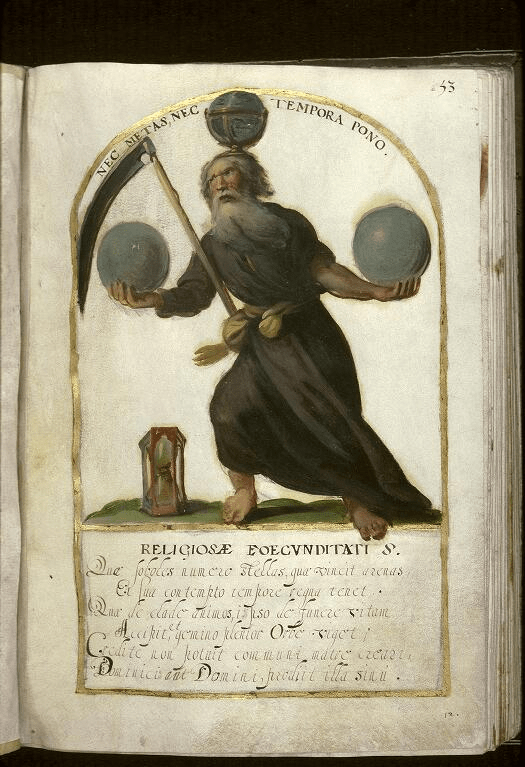 53
NEC METAS, NEC TEMPORA PONO.
RELIGIOSÆ FOECVNDITATI S.
Quæ soboles numero stellas, quæ vincit arenas,
Et sua contempto tempore regna tenet.
Quæ de clade animos, ipso de funere vitam
Accipit, et gemino plenior Orbe viget;
Credite non potuit communi matre creari,
Dominici aut Domini, prodiit illa sinu.
12.